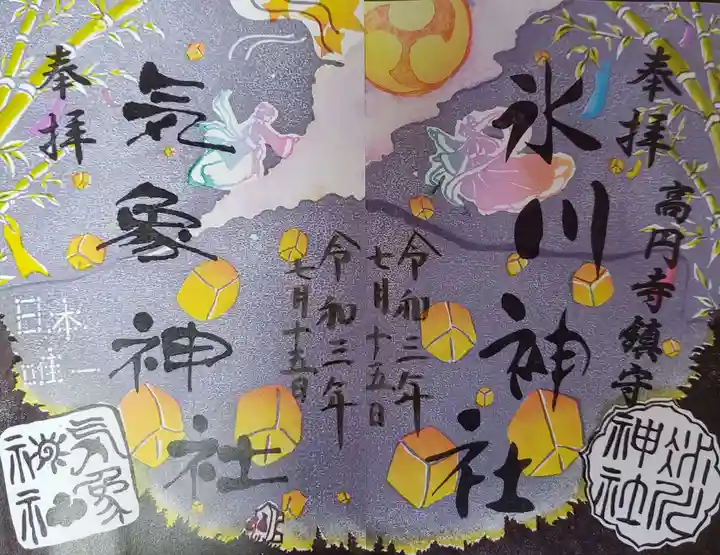 奉拝
高円寺鎮守
氷川神社
令和三年
七月十五日
氷川神社
奉拝
気象神社
令和三年
七月十五日
日本
唯一
気象神社